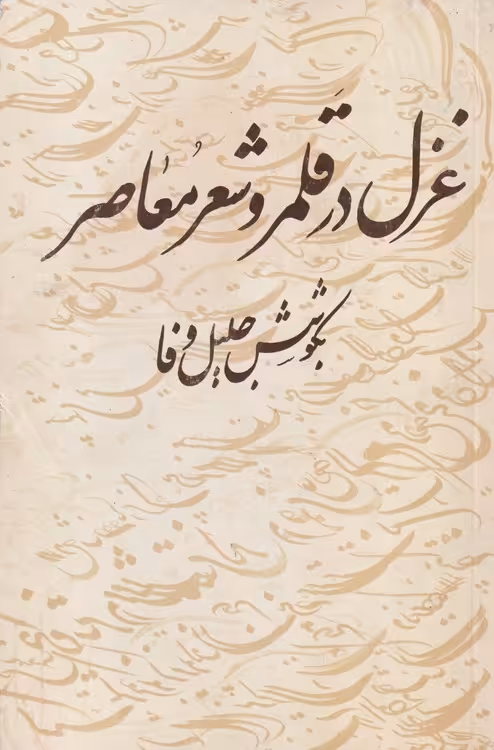 غزل در قلمرو شعر معاصر
بکوشش جلیل وفا